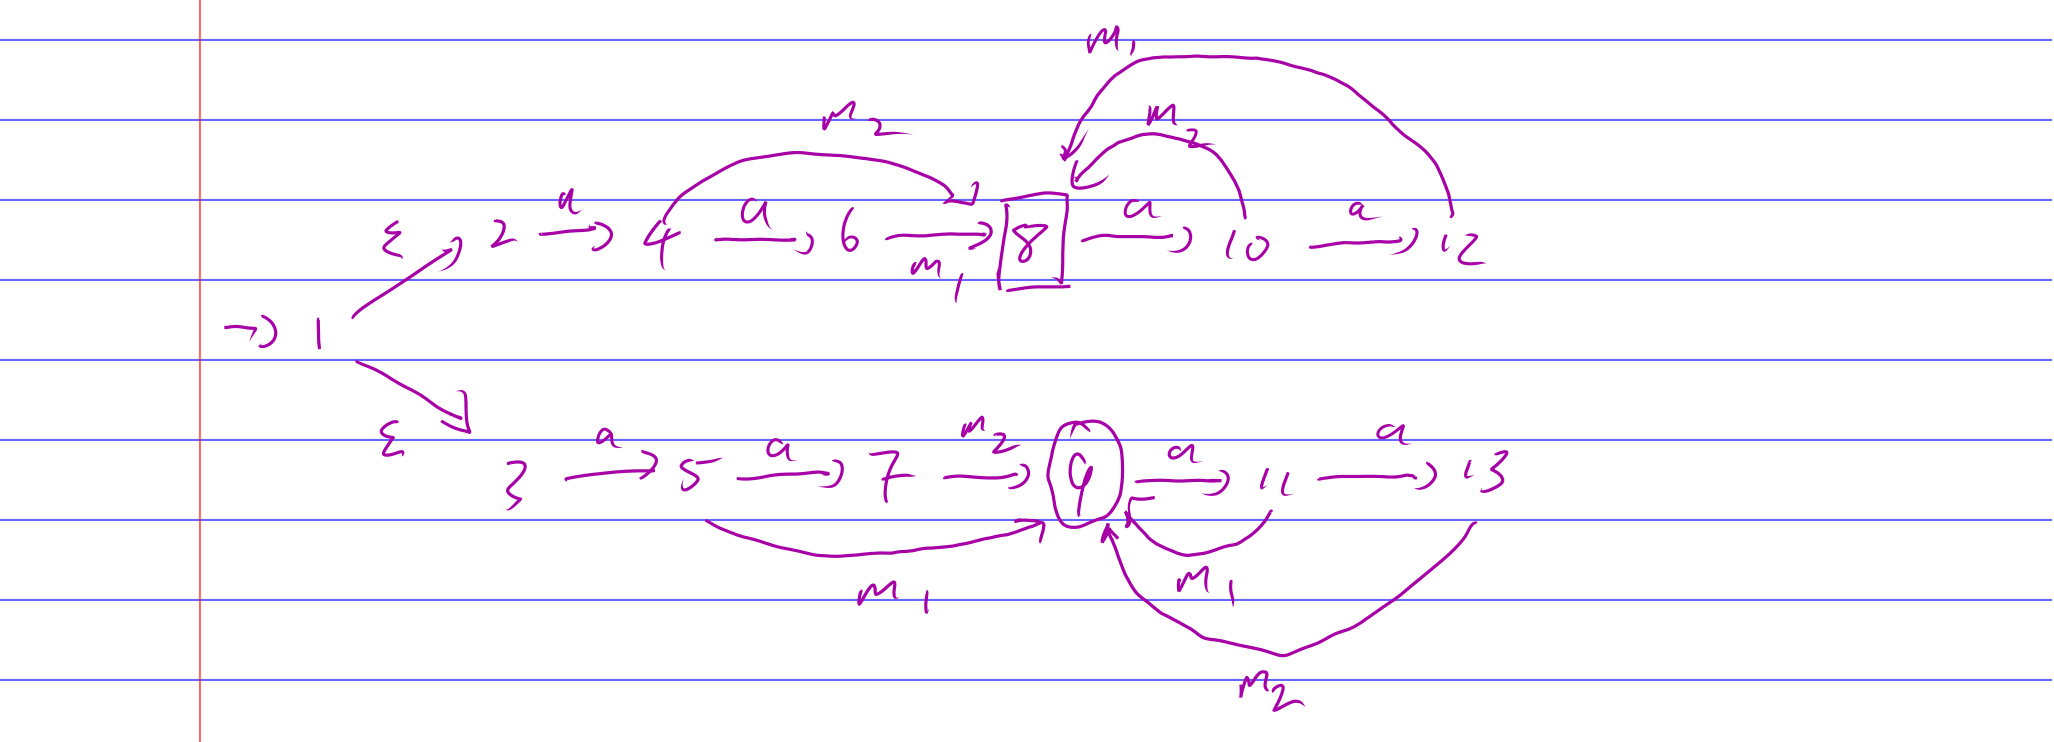 m₁
m₂ m₂
ε 2 a→ 4 a→ 6 m₁→ 8 a→ 10 a→ 12
→ 1
ε 3 a→ 5 a→ 7 m₂→ 9 a→ 11 a→ 13
m₁ m₁
m₂